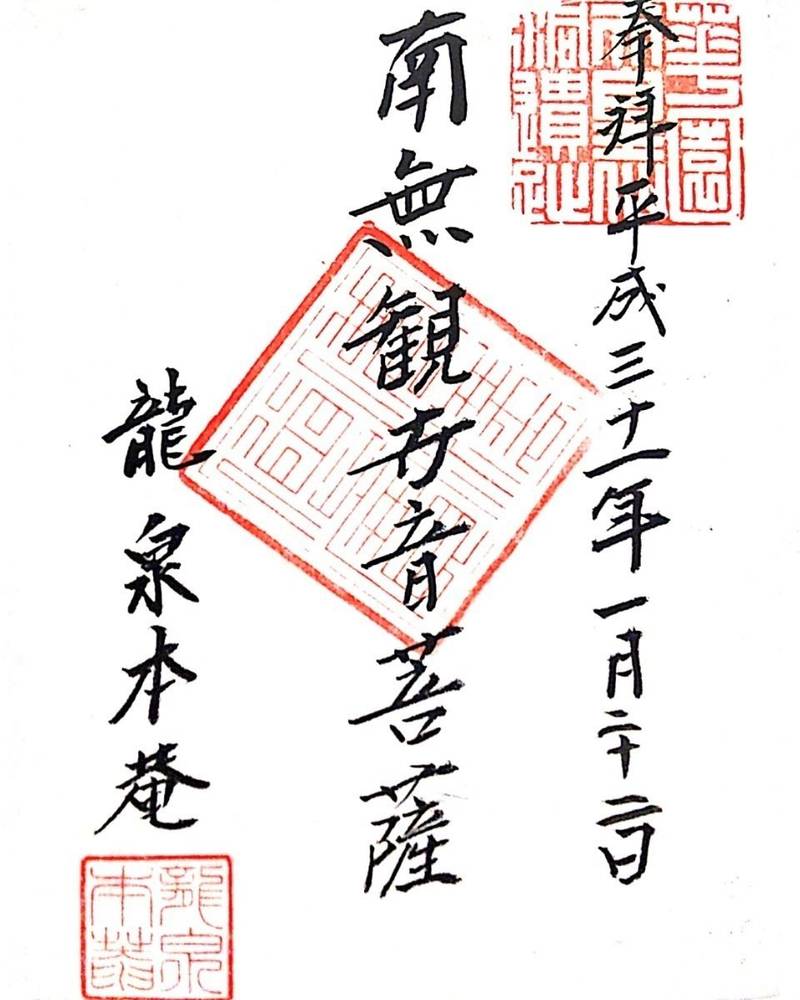 奉拝 平成三十一年一月二十二日
南無観世音菩薩
龍泉本菴
龍泉
本菴